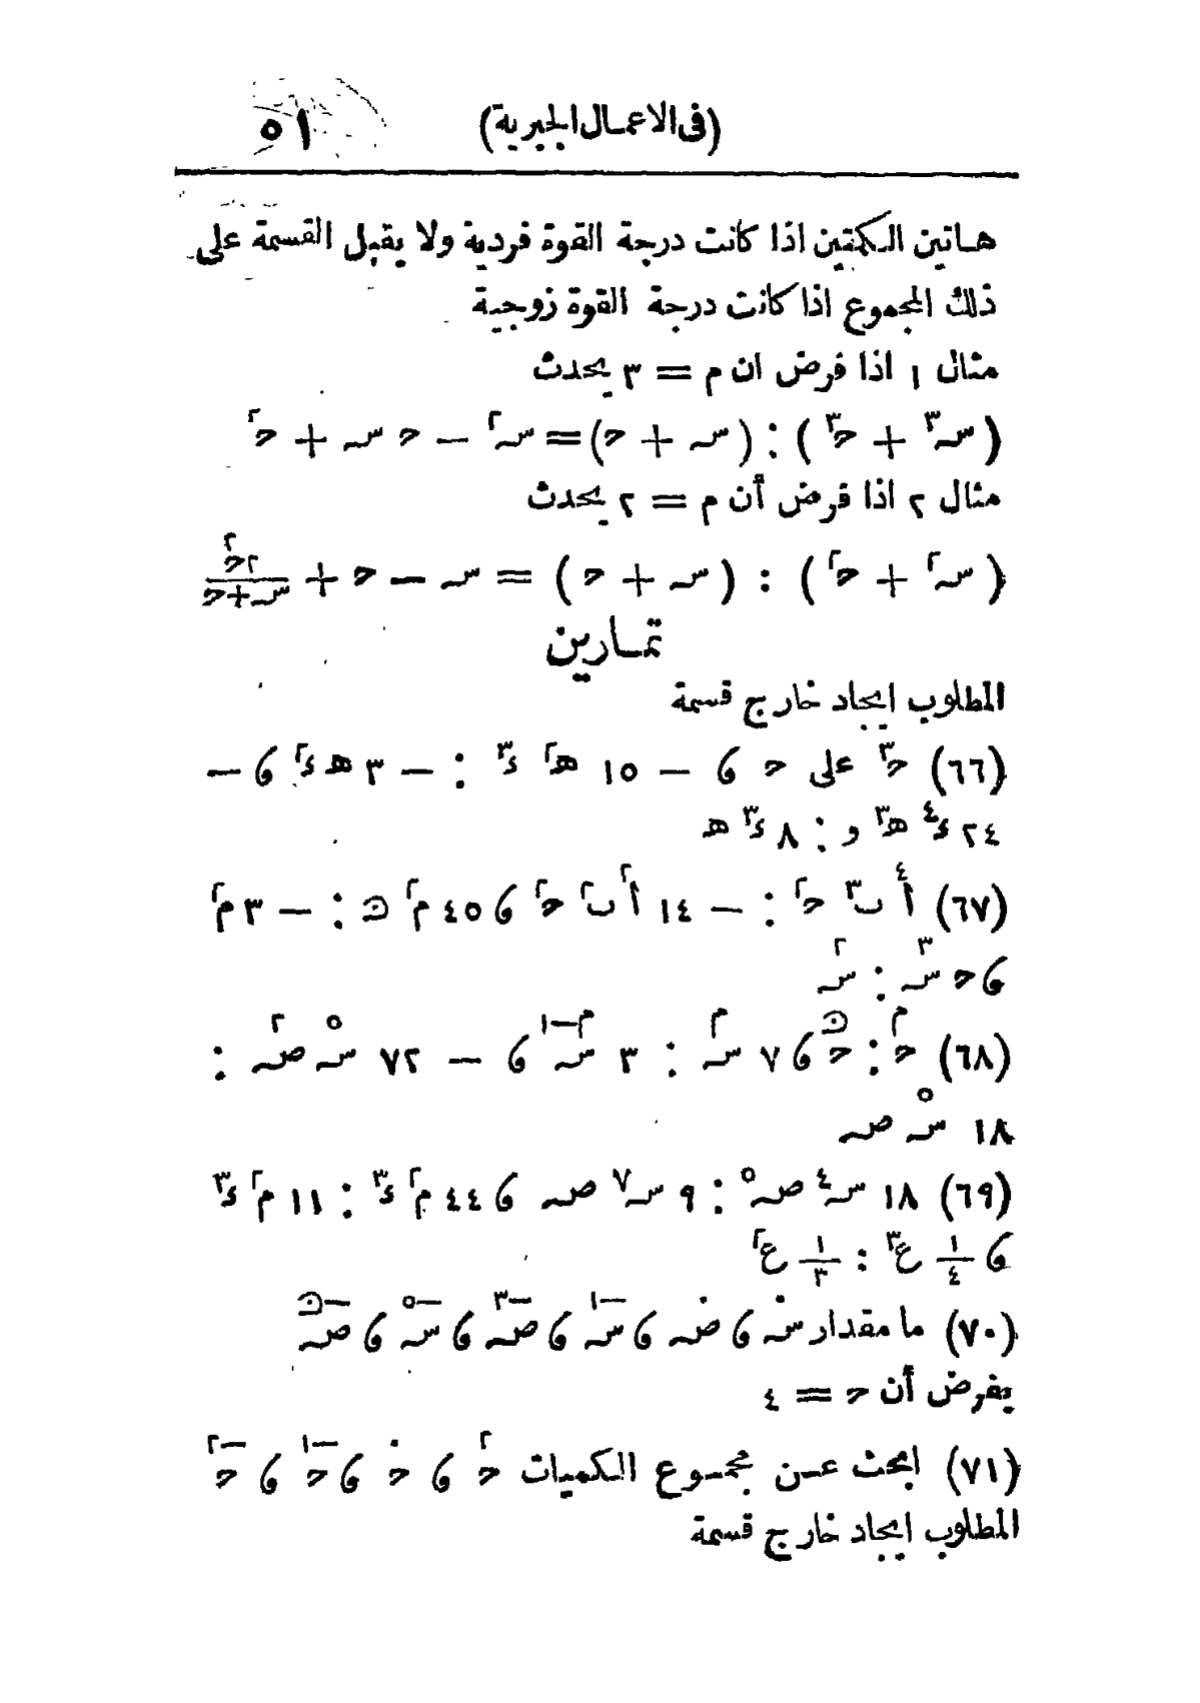 (فى الاعمال الجبرية) ٥١
هاتين الكمتين اذا كانت درجة القوة فردية ولا يقبل القسمة على
ذلك المجموع اذا كانت درجة القوة زوجية
مثال ١ اذا فرض ان م = ٣ يحدث
(س^٣ + ح^٣) : (س + ح) = س^٢ − ح س + ح^٢
مثال ٢ اذا فرض أن م = ٢ يحدث
(س^٢ + ح^٢) : (س + ح) = س − ح + ٢ح^٢/(س+ح)
تمارين
المطلوب ايجاد خارج قسمة
(٦٦) ح^٣ على ح ؤ − ١٥ ه^٢ ء^٣ : − ٣ ه ء^٢ ؤ −
٢٤ ء^٤ ه^٣ و : ٨ ء^٣ ه
(٦٧) أ^٤ ب^٣ ح^٢ : − ١٤ أ^٢ ب^٢ ح^٢ ؤ ٤٥ م^٢ ن : − ٣ م^٢
ؤ ح س^٣ : س^٢
(٦٨) ح^م : ح^ن ؤ ٧ س^م : ٣ س^(م−١) ؤ − ٧٢ س^٥ ص^٢ :
١٨ س^٥ ص
(٦٩) ١٨ س^٤ ص^٥ : ٩ س^٧ ص ؤ ٤٤ م^٢ ء^٣ : ١١ م^٢ ء^٣
ؤ ١/٤ ع^٣ : ١/٣ ع^٢
(٧٠) ما مقدار س^٠ ؤ ص^٠ ؤ س^−١ ؤ ص^−٣ ؤ س^−٥ ؤ ص^−ن
بفرض أن ح = ٤
(٧١) ابحث عن مجموع الكميات ح^٢ ؤ ح^٠ ؤ ح^−١ ؤ ح^−٢
المطلوب ايجاد خارج قسمة